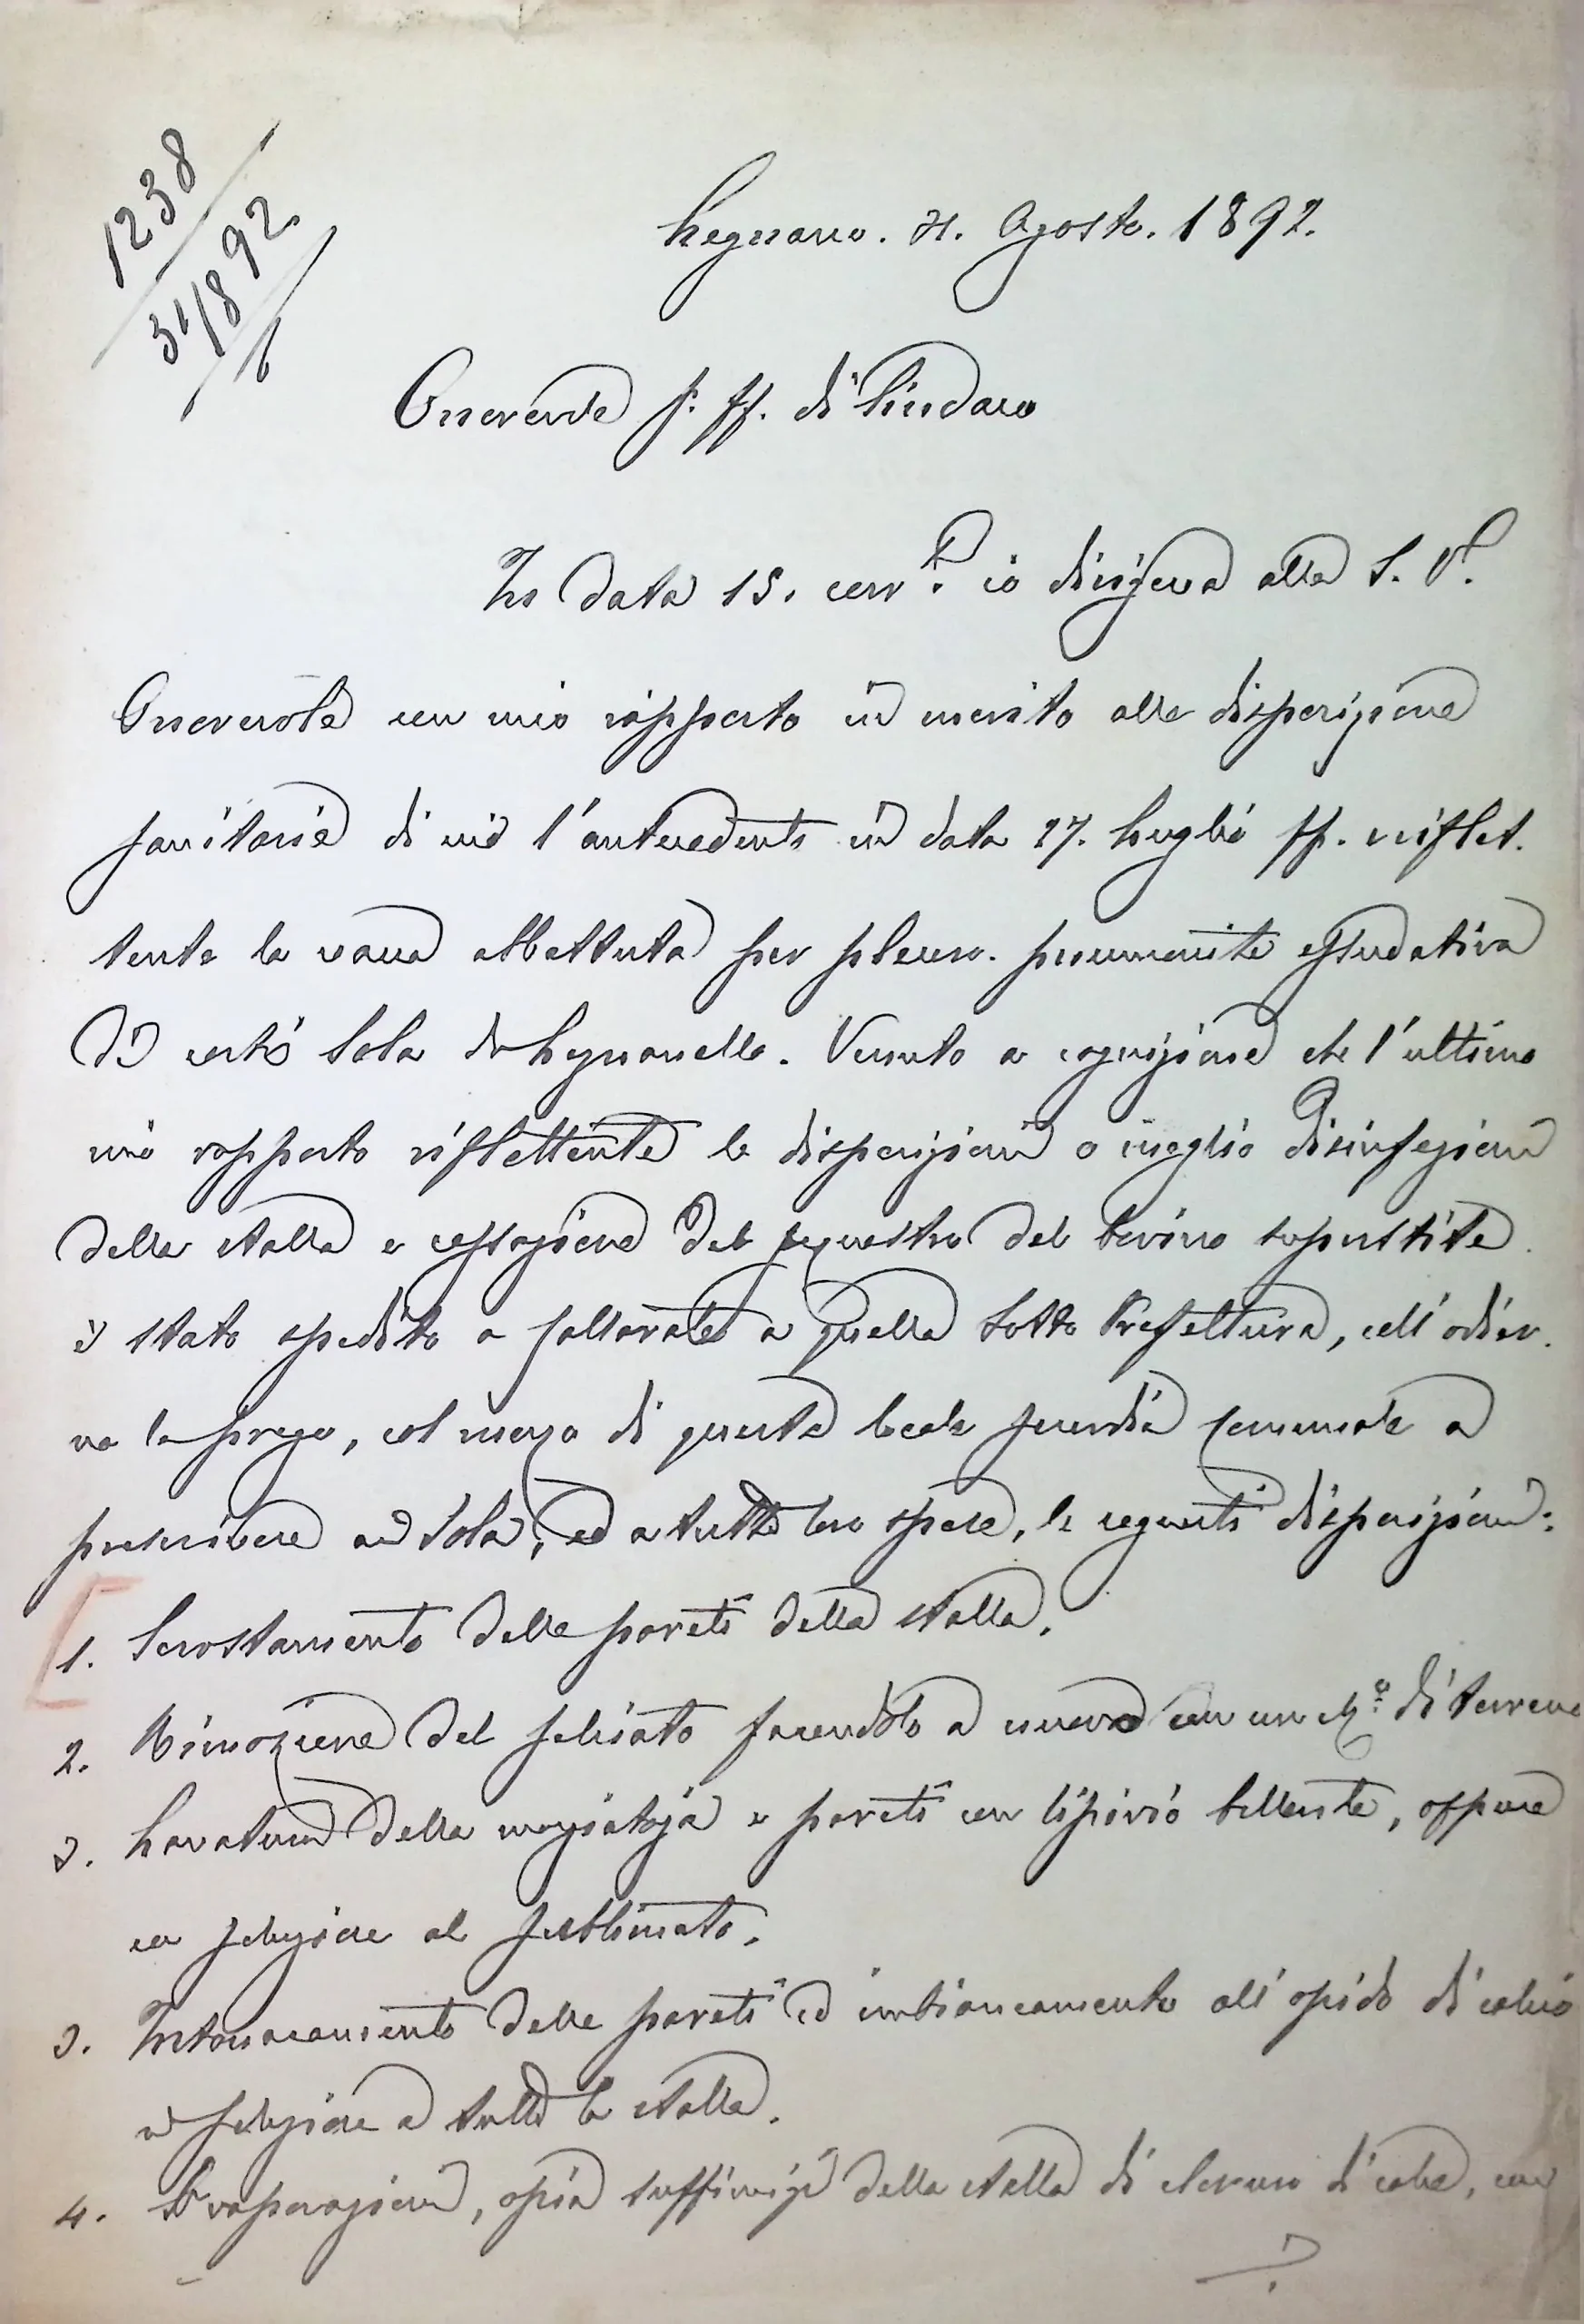 1238
31/8 92
6
Legnano. 31. Agosto. 1892.
Onorevole S. ff. di Sindaco
In data 15. corr. io dirigeva alla S. V.
Onorevole un mio rapporto in merito alle disposizione
sanitarie di cui l'antecedente in data 27. Luglio pp. riflet-
tente la vacca abbattuta per pleuro-pneumonite essudativa
di certo Sola di Legnanello. Venuto a cognizione che l'ultimo
mio rapporto riflettente le disposizioni o meglio disinfezioni
della stalla e cessazione del sequestro del bovino superstite
è stato spedito a Gallarate a quella Sotto Prefettura, coll'odier-
na la prego, col mezzo di questa locale guardia comunale a
prescrivere al Sola, ed a tutte loro spese, le seguenti disposizioni:
1. Scrostamento delle pareti della stalla.
2. Rimozione del selciato facendolo a nuovo con un di terreno
3. Lavatura della mangiatoja e pareti con lisivio bollente, oppure
con soluzione al sublimato.
3. Intonacamento delle pareti ed imbiancamento all'ossido di calcio
in soluzione a tutta la stalla.
4. Svaporazioni, ossia suffumigi della stalla di cloruro di calce, con